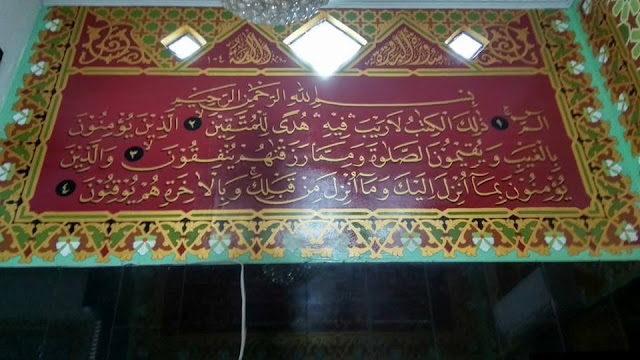 سورة البقرة
بسم الله الرحمن الرحيم
الم ١ ذلك الكتب لاريب فيه هدى للمتقين ٢ الذين يؤمنون
بالغيب ويقيمون الصلوة ومما رزقنهم ينفقون ٣ والذين
يؤمنون بما أنزل اليك وما أنزل من قبلك وبالاخرة هم يوقنون ٤